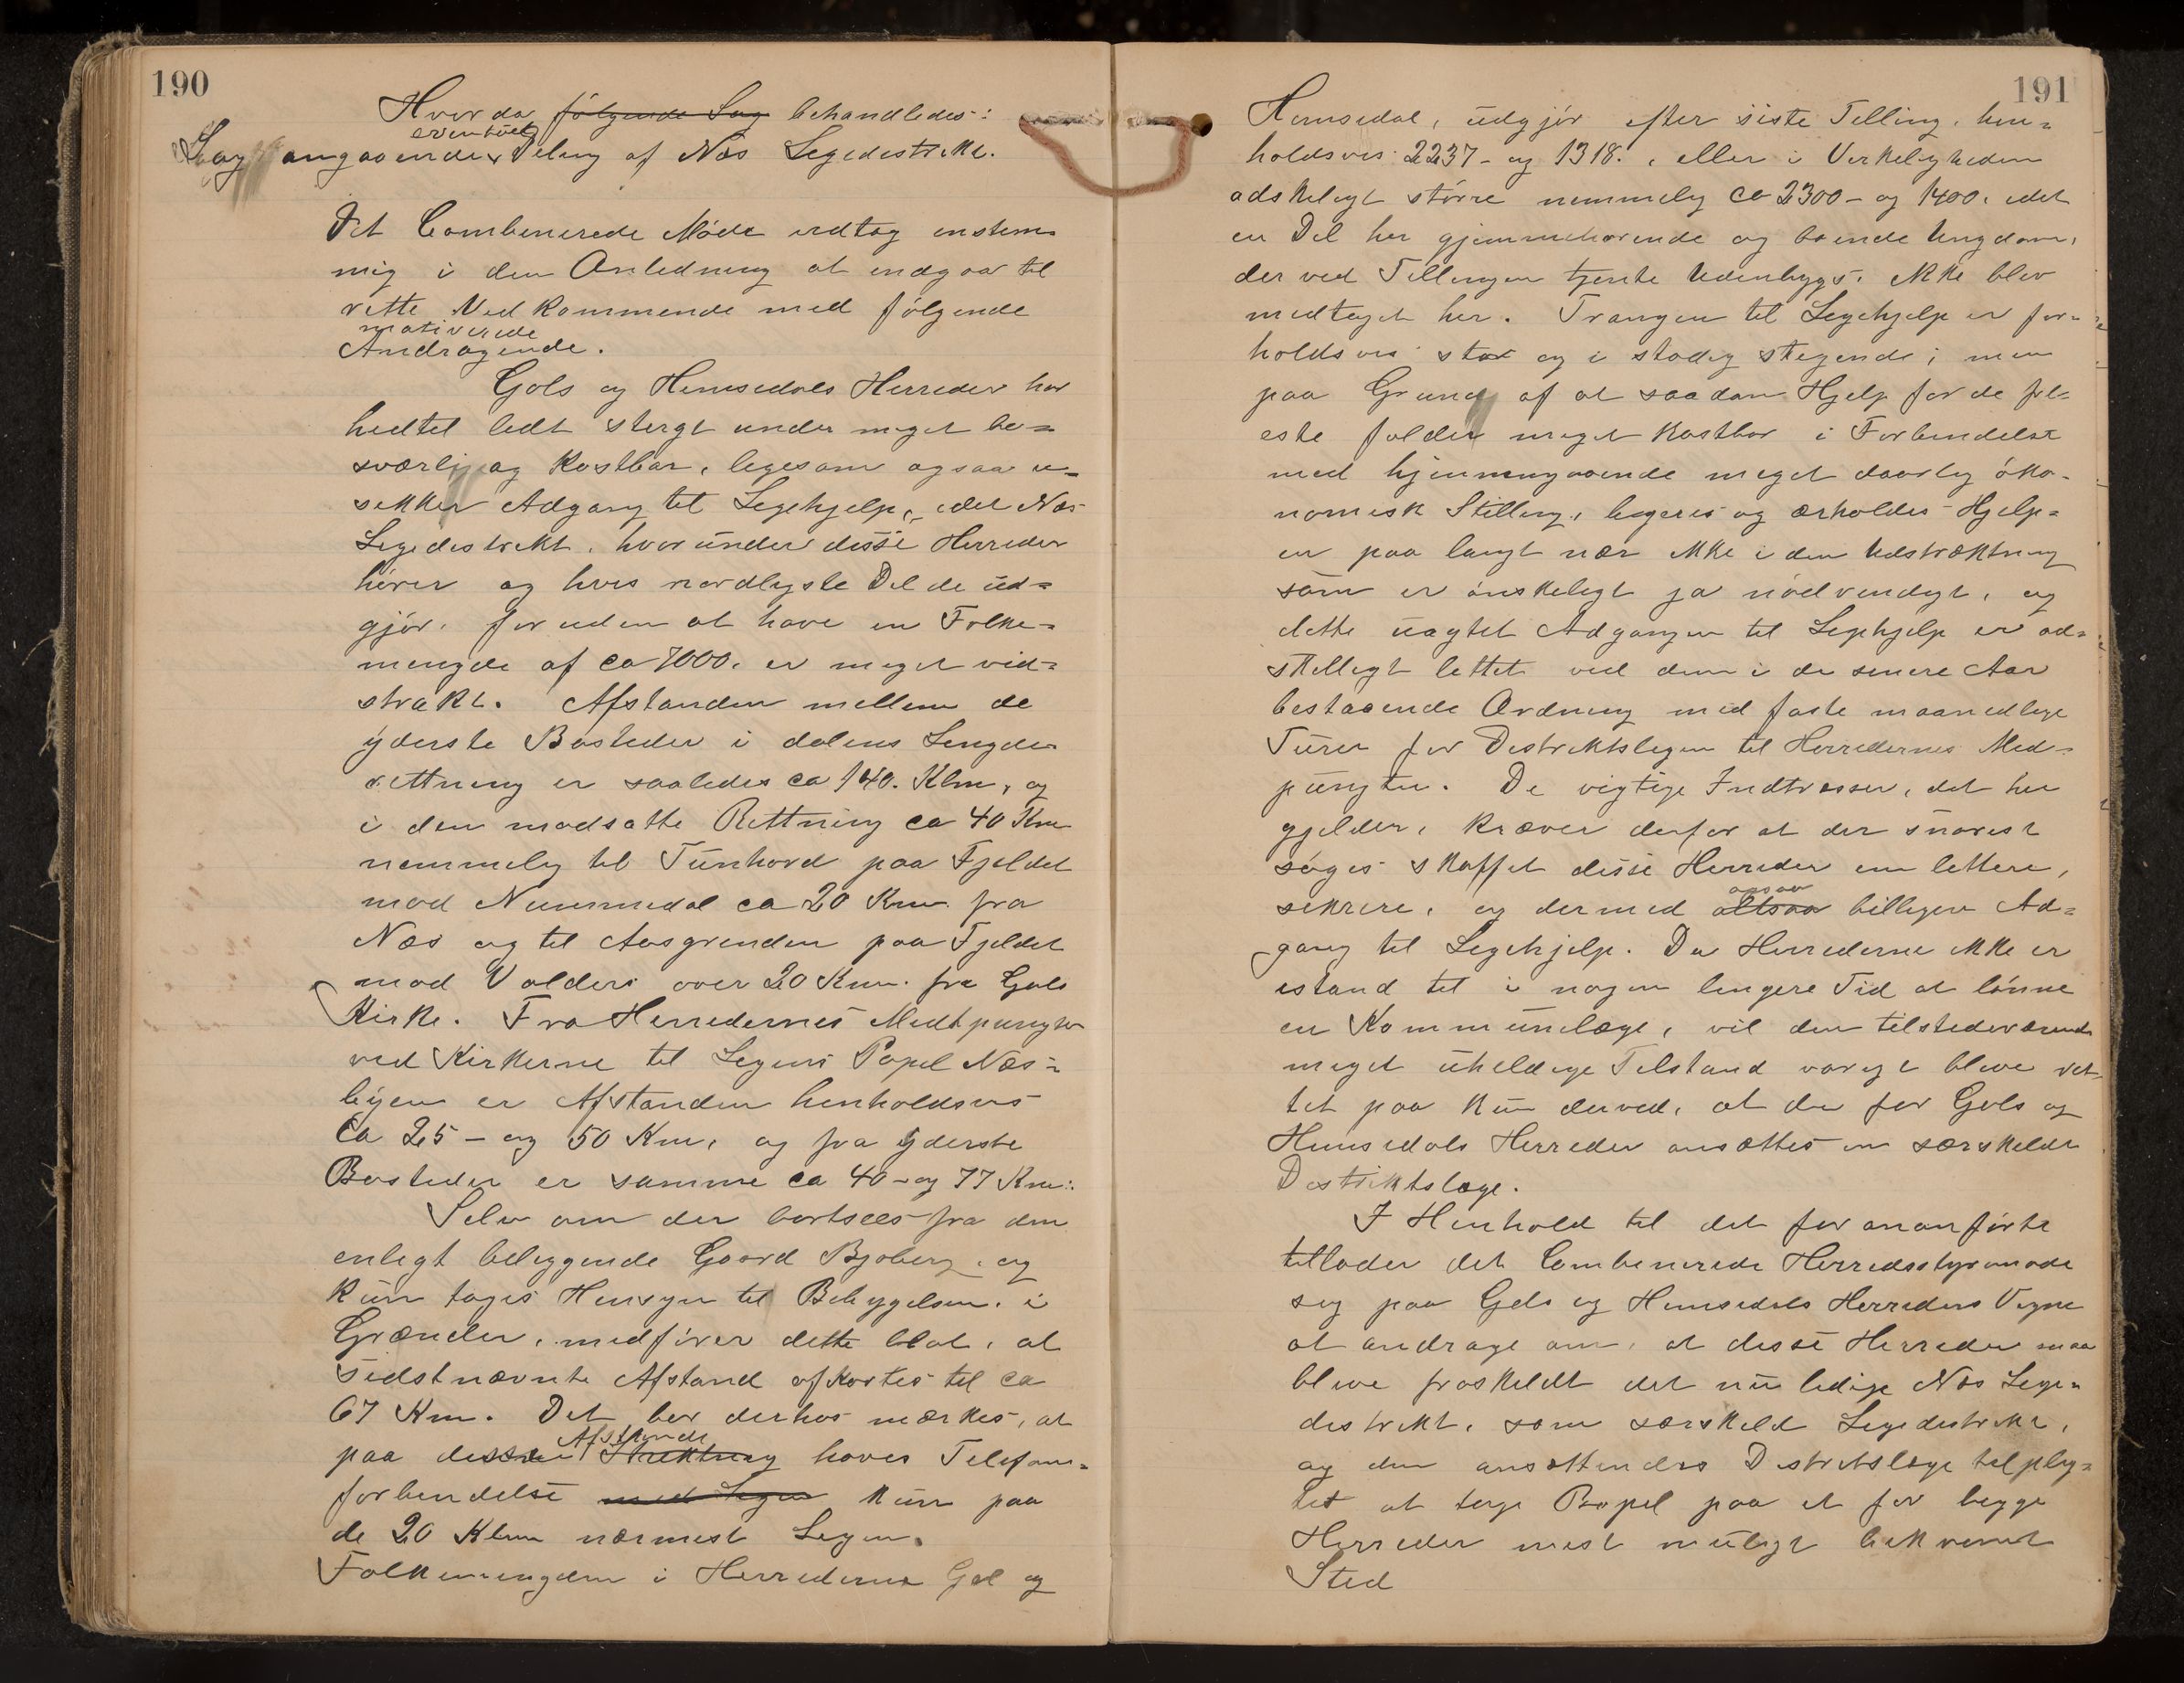 190
Hvorda følgende Sag behandledes:
eventuel
Sag angaaende Deling af Næs Legedistrikt.
Det Combinerede Møde vedtog enstem-
mig i den Anledning at indgaa til
rette Vedkommende med følgende
motiverede
Andragende.
Gols og Hemsedals Herreder har
hedtil ledt stergt under meget be=
sværlig og kostbar, legesom ogsaa u=
sekker Adgang til Legehjelp, idet Næs
Legedistrikt, hvorunder disse Herreder
hører og hvis nordligste Del de ud=
gjør, foruden at have en Folke=
mengde af ca 7000, er meget vid=
strakt. Afstanden mellem de
yderste Bosteder i dalens Lengde-
rettning er saaledes ca 140. Klm, og
i den modsatte Rettning ca 40 Km
nemmelig til Tunhovd paa Fjeldet
mod Nummedal ca 20 Km. fra
Næs og til Aasgrenden paa Fjeldet
mod Valders over 20 Km. fra Gols
Kirke. Fra Herredernes Midtpungter
ved Kirkerne til Legens Bopel Næs=
byen er Afstanden henholdsvis
ca 25 - og 50 Km, og fra yderste
Bosteder er samme ca 40 - og 77 Km.
Selv om der bortsees fra den
enligt beliggende Gaard Bjøberg, og
kun tages Hensyn til Bebygelsen i
Grænder, medfører dette blot, at
sidstnævnte Afstand afkortes til ca
67 Km. Det bør derhos mærkes, at
Afstande
paa dessen Strektning haves Telefon=
forbindelse med Legen kun paa
de 20 Klm nærmest Legen.
Folkemengden i Herrederne Gol og
191
Hemsedal, udgjør efter siste Telling, hen=
holdsvis 2237 - og 1318. , eller i Verkeligheden
adskeligt større nemmelig ca 2300 - og 1400, idet
en Del her hjemmehørende og boende Ungdom,
der ved Tellingen tjente Udenbygs, ikke blev
medtaget her. Trangen til Legehjelp er for=
holdsvis stor og i stadig stegende; men
paa Grund af at saadan Hjelp for de fle-
este falder meget kostbar i Forbindelse
med hjennemgaaende meget daarlig øko-
nomisk Stilling, begeres og erholdes Hjelp=
en paa langt nær ikke i den Udstræktning
som er ønskeligt ja nødvendigt, og
dette uagtet Adgangen til Legehjelp er ad=
skilligt lettet ved den i de senere Aar
bestaaende Ordning med faste maanedlige
Turer for Distriktslegen til Herredernes Med=
pungter. De vigtige Indtresser, det her
gjelder, kræver derfor at der snarest
søges skaffet disse Herreder en lettere,
ogsaa
sekrere, og dermed altsaa billigere Ad=
gang til Legehjelp. Da Herrederne ikke er
istand til i nogen lengere Tid at lønne
en Kommunelæge, vil den tilstedeværende
meget uheldige Tilstand varigt blive ret-
tet paa kun derved, at der for Gols og
Hemsedals Herreder ansættes en særskeldt
Distriktslæge.
I Henhold til det forananførte
tillader det Combinerede Herredsstyremøde
seg paa Gols og Hemsedals Herreders Vegne
at andrage om, at disse Herreder maa
blive fraskeldt det nu ledige Næs Lege=
distrikt, som særskeld Legedistrikt,
og den ansættendes Distriktslege tilplig=
tet at tage Bopel paa et for begge
Herreder mest muligt bekvemt
Sted